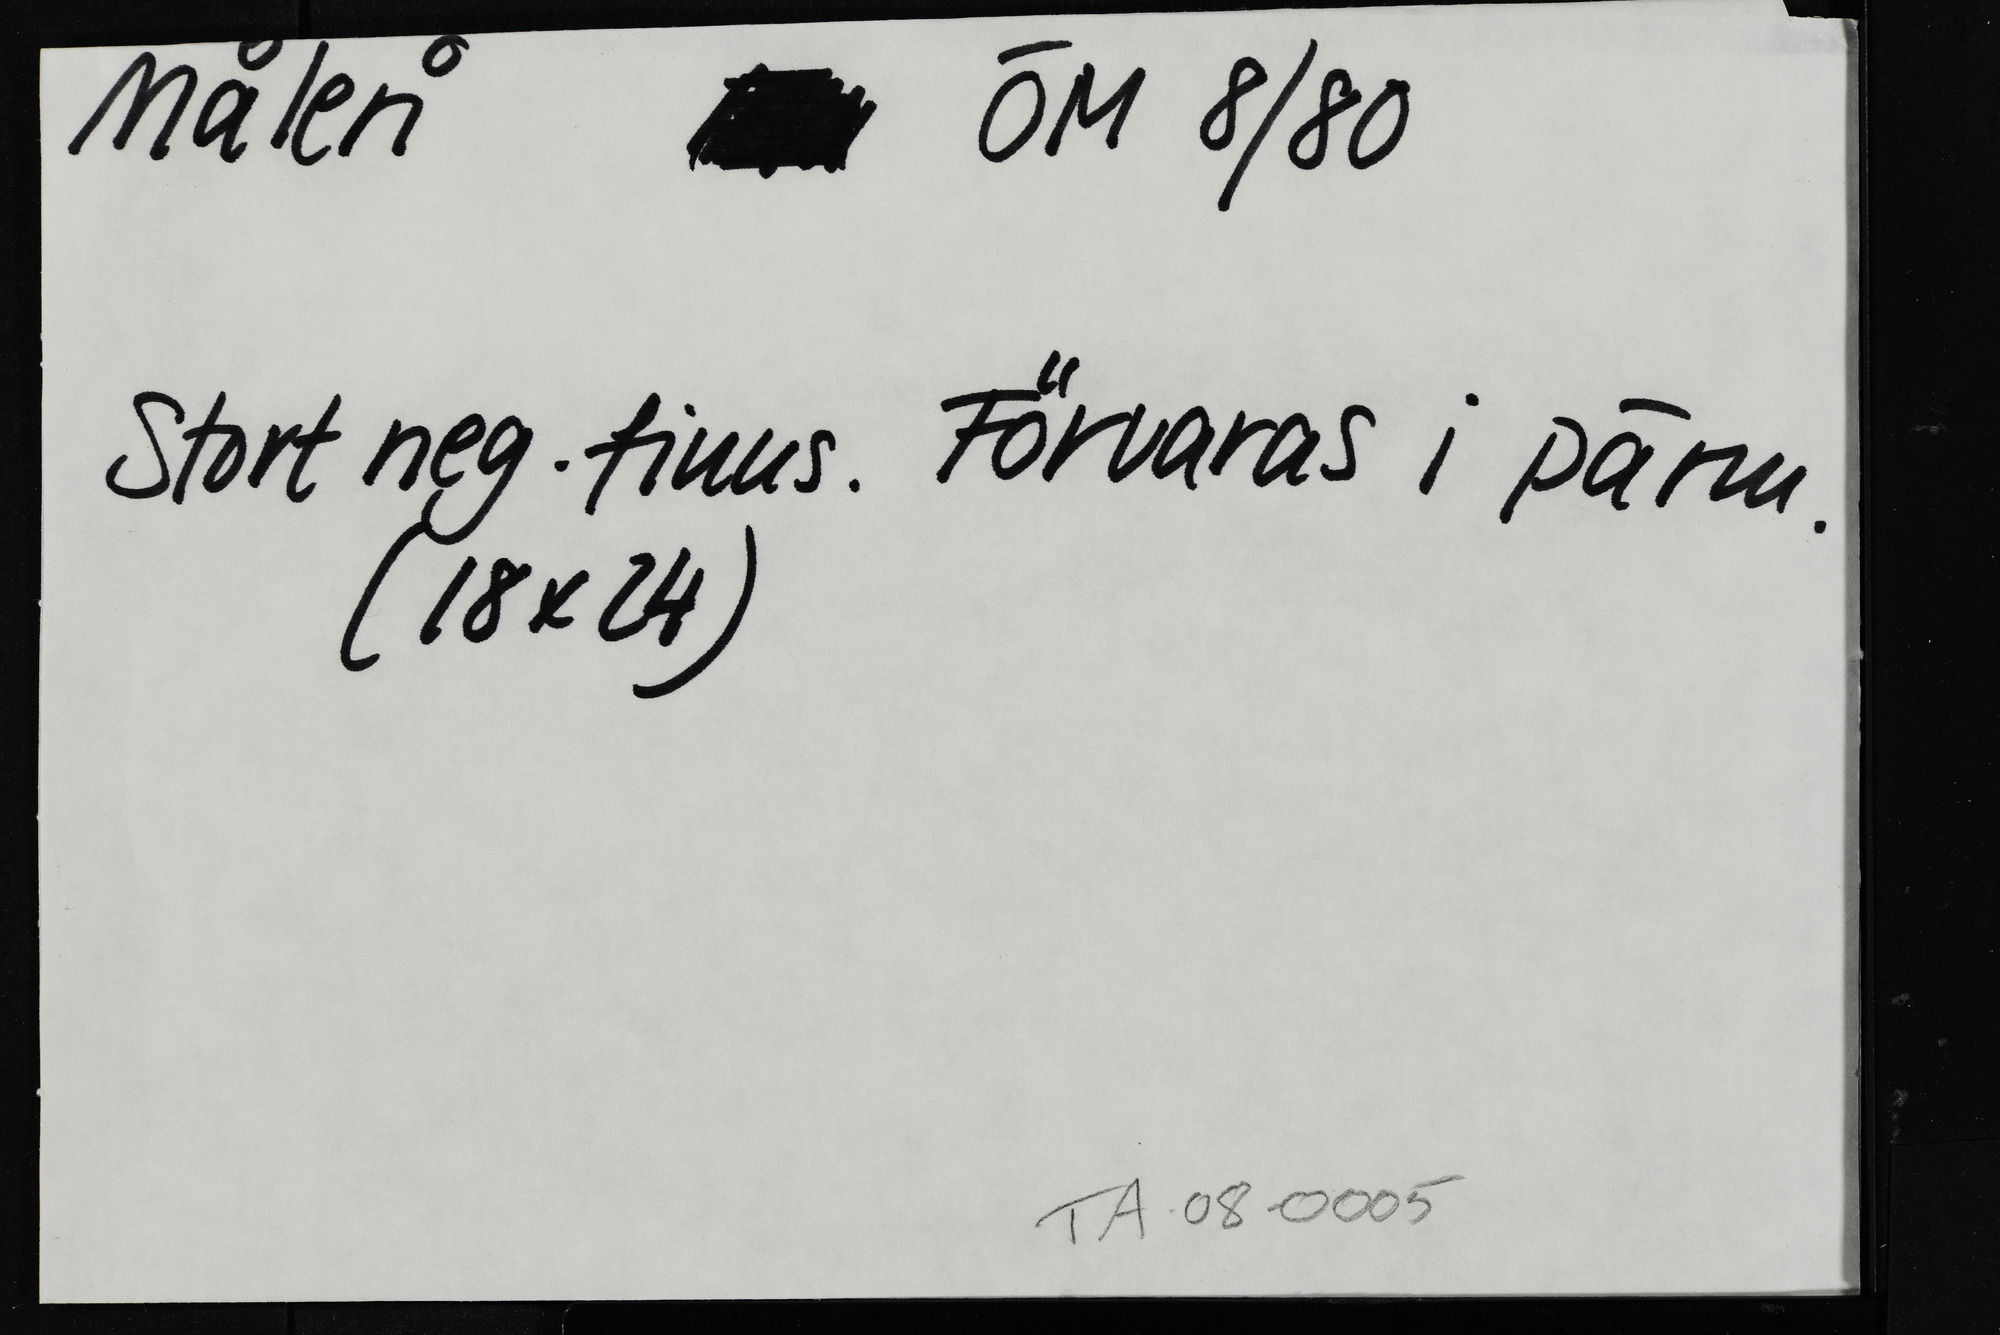 Måleri ÖM 8/80
Stort neg. finns. Förvaras i pärm.
(18x24)
TA.08-0005